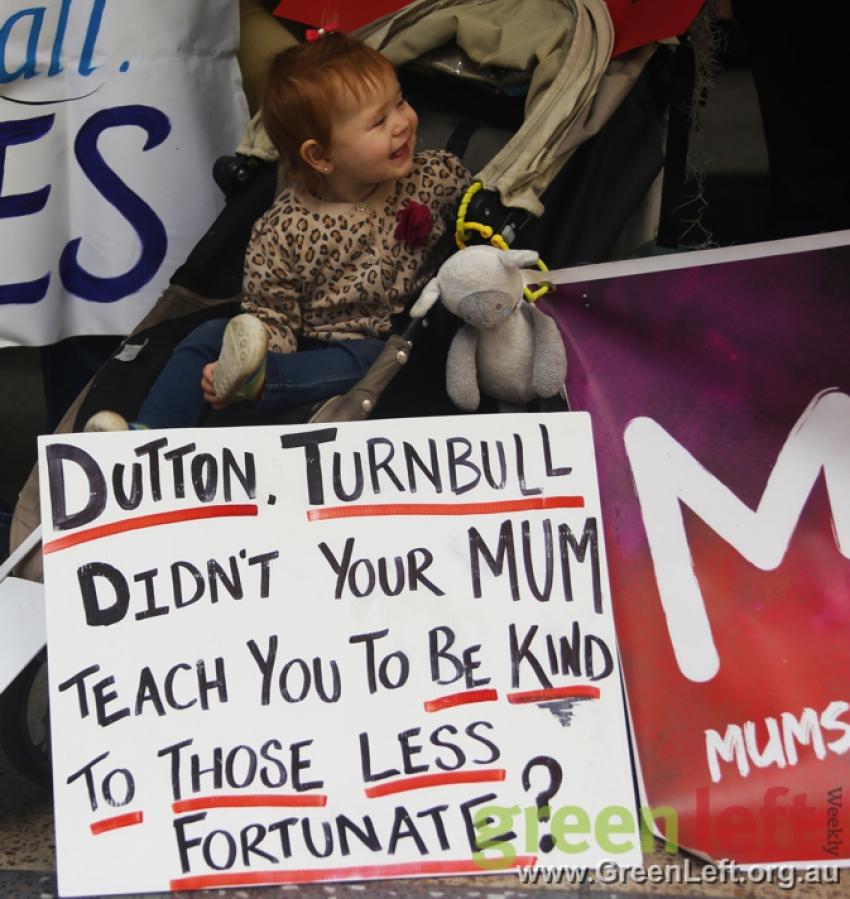 all.
ES
DUTTON, TURNBULL
DIDN'T YOUR MUM
TEACH YOU TO BE KIND
TO THOSE LESS
FORTUNATE?
M
MUMS
greenleft
Weekly
www.GreenLeft.org.au